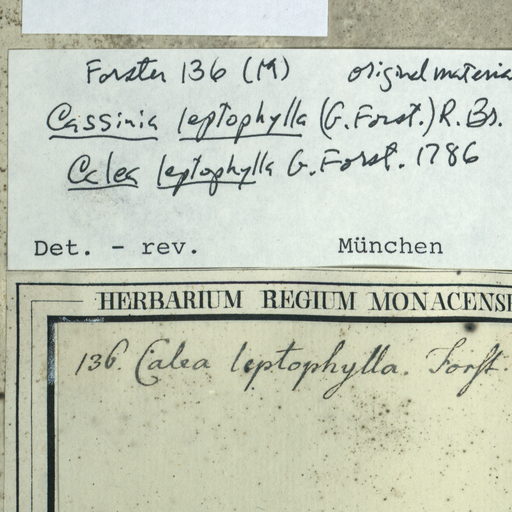 Forster 136 (M) original materia
Cassinia leptophylla (G. Forst.) R. Br.
Calea leptophylla G. Forst. 1786
Det. - rev. München
HERBARIUM REGIUM MONACENSE
136. Calea leptophylla. Forst.